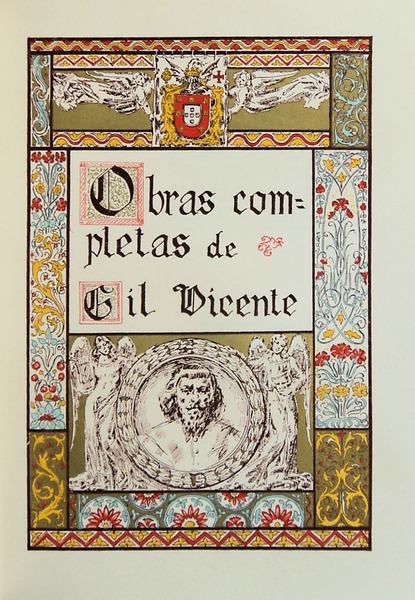 Obras com=
pletas de
Gil Vicente